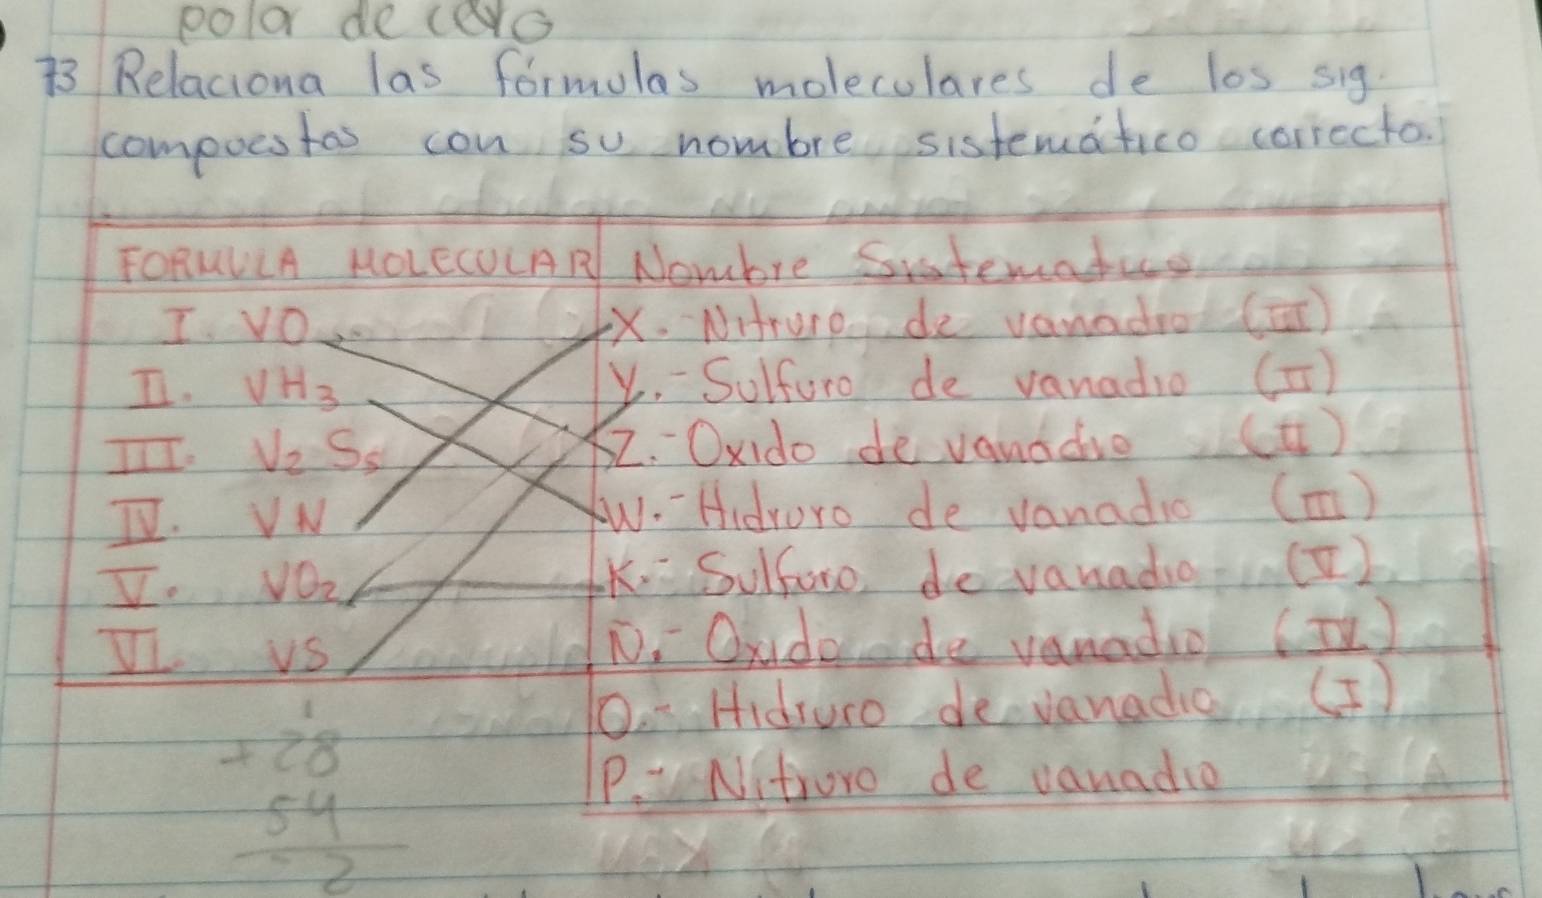 pola de cero
73 Relaciona las fórmulas moleculares de los sig.
compuestos con su nombre sistemático correcto.
FORMULA MOLECULAR Nombre Sistematico
I. VO X.- Nitruro de vanadio (III)
II. VH3 Y.- Sulfuro de vanadio (II)
III. V2 S5 Z.- Oxido de vanadio (II)
IV. VN W.- Hidruro de vanadio (III)
V. VO2 K.- Sulfuro de vanadio (V)
VI. VS N.- Oxido de vanadio (IV)
O.- Hidruro de vanadio (I)
P.- Nitruro de vanadio
1
+ 28
54
2